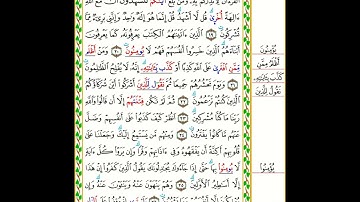 ءَالِهَةً أُخْرَىٰ قُل لَّآ أَشْهَدُ قُلْ إِنَّمَا هُوَ إِلَٰهٌ وَٰحِدٌ وَإِنَّنِى بَرِىٓءٌ مِّمَّا
تُشْرِكُونَ ۝ ٱلَّذِينَ ءَاتَيْنَٰهُمُ ٱلْكِتَٰبَ يَعْرِفُونَهُۥ كَمَا يَعْرِفُونَ
أَبْنَآءَهُمُ ٱلَّذِينَ خَسِرُوٓا۟ أَنفُسَهُمْ فَهُمْ لَا يُؤْمِنُونَ ۝ وَمَنْ أَظْلَمُ
مِمَّنِ ٱفْتَرَىٰ عَلَى ٱللَّهِ كَذِبًا أَوْ كَذَّبَ بِـَٔايَٰتِهِۦٓ إِنَّهُۥ لَا يُفْلِحُ ٱلظَّٰلِمُونَ
۝ وَيَوْمَ نَحْشُرُهُمْ جَمِيعًا ثُمَّ نَقُولُ لِلَّذِينَ أَشْرَكُوٓا۟ أَيْنَ شُرَكَآؤُكُمُ
ٱلَّذِينَ كُنتُمْ تَزْعُمُونَ ۝ ثُمَّ لَمْ تَكُن فِتْنَتُهُمْ إِلَّآ أَن قَالُوا۟ وَٱللَّهِ
رَبِّنَا مَا كُنَّا مُشْرِكِينَ ۝ ٱنظُرْ كَيْفَ كَذَبُوا۟ عَلَىٰٓ أَنفُسِهِمْ وَضَلَّ
عَنْهُم مَّا كَانُوا۟ يَفْتَرُونَ ۝ وَمِنْهُم مَّن يَسْتَمِعُ إِلَيْكَ وَجَعَلْنَا عَلَىٰ
قُلُوبِهِمْ أَكِنَّةً أَن يَفْقَهُوهُ وَفِىٓ ءَاذَانِهِمْ وَقْرًا وَإِن يَرَوْا۟ كُلَّ ءَايَةٍ
لَّا يُؤْمِنُوا۟ بِهَا حَتَّىٰٓ إِذَا جَآءُوكَ يُجَٰدِلُونَكَ يَقُولُ ٱلَّذِينَ كَفَرُوٓا۟ إِنْ هَٰذَآ
إِلَّآ أَسَٰطِيرُ ٱلْأَوَّلِينَ ۝ وَهُمْ يَنْهَوْنَ عَنْهُ وَيَنْـَٔوْنَ عَنْهُ وَإِن
يُومِنُونَ
أَظْلَم مِّمَّنِ
كَذَّب بِّـَٔايَٰتِهِۦ
نَقُول لِّلَّذِينَ
يُومِنُوا۟